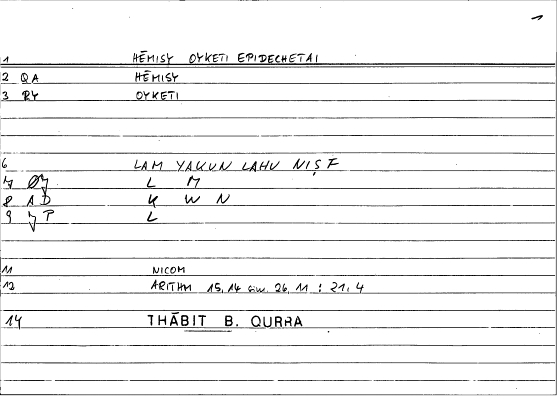 1 HĒMISY OYKETI EPIDECHETAI
2 QA HĒMISY
3 RY OYKETI
6 LAM YAKUN LAHU NIṢF
7 L M
8 AD K W N
9 L
11 NICOM
12 ARITHM 15,14 26,11 : 21,4
14 THĀBIT B. QURRA